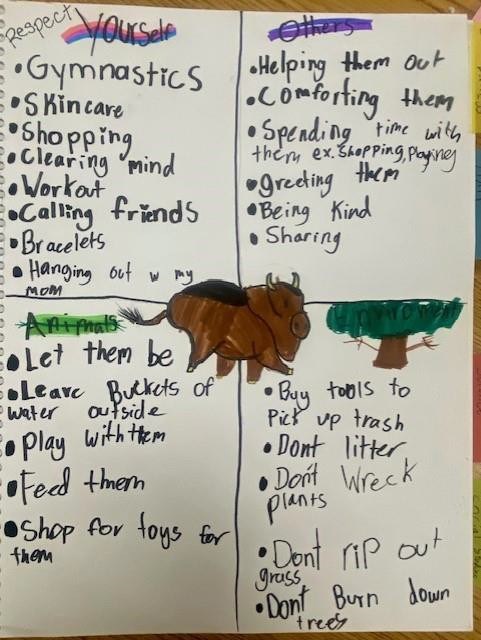 Respect Yourself
• Gymnastics
• Skincare
• Shopping
• Clearing mind
• Workout
• Calling friends
• Bracelets
• Hanging out w my
mom
Others
• Helping them out
• Comforting them
• Spending time with
them ex. shopping, playing
• greeting them
• Being kind
• Sharing
Animals
• Let them be
• Leave Buckets of
water outside
• Play with them
• Feed them
• Shop for toys for
them
Enviroment
• Buy tools to
Pick up trash
• Dont litter
• Don't wreck
plants
• Dont rip out
grass
• Dont Burn down
trees